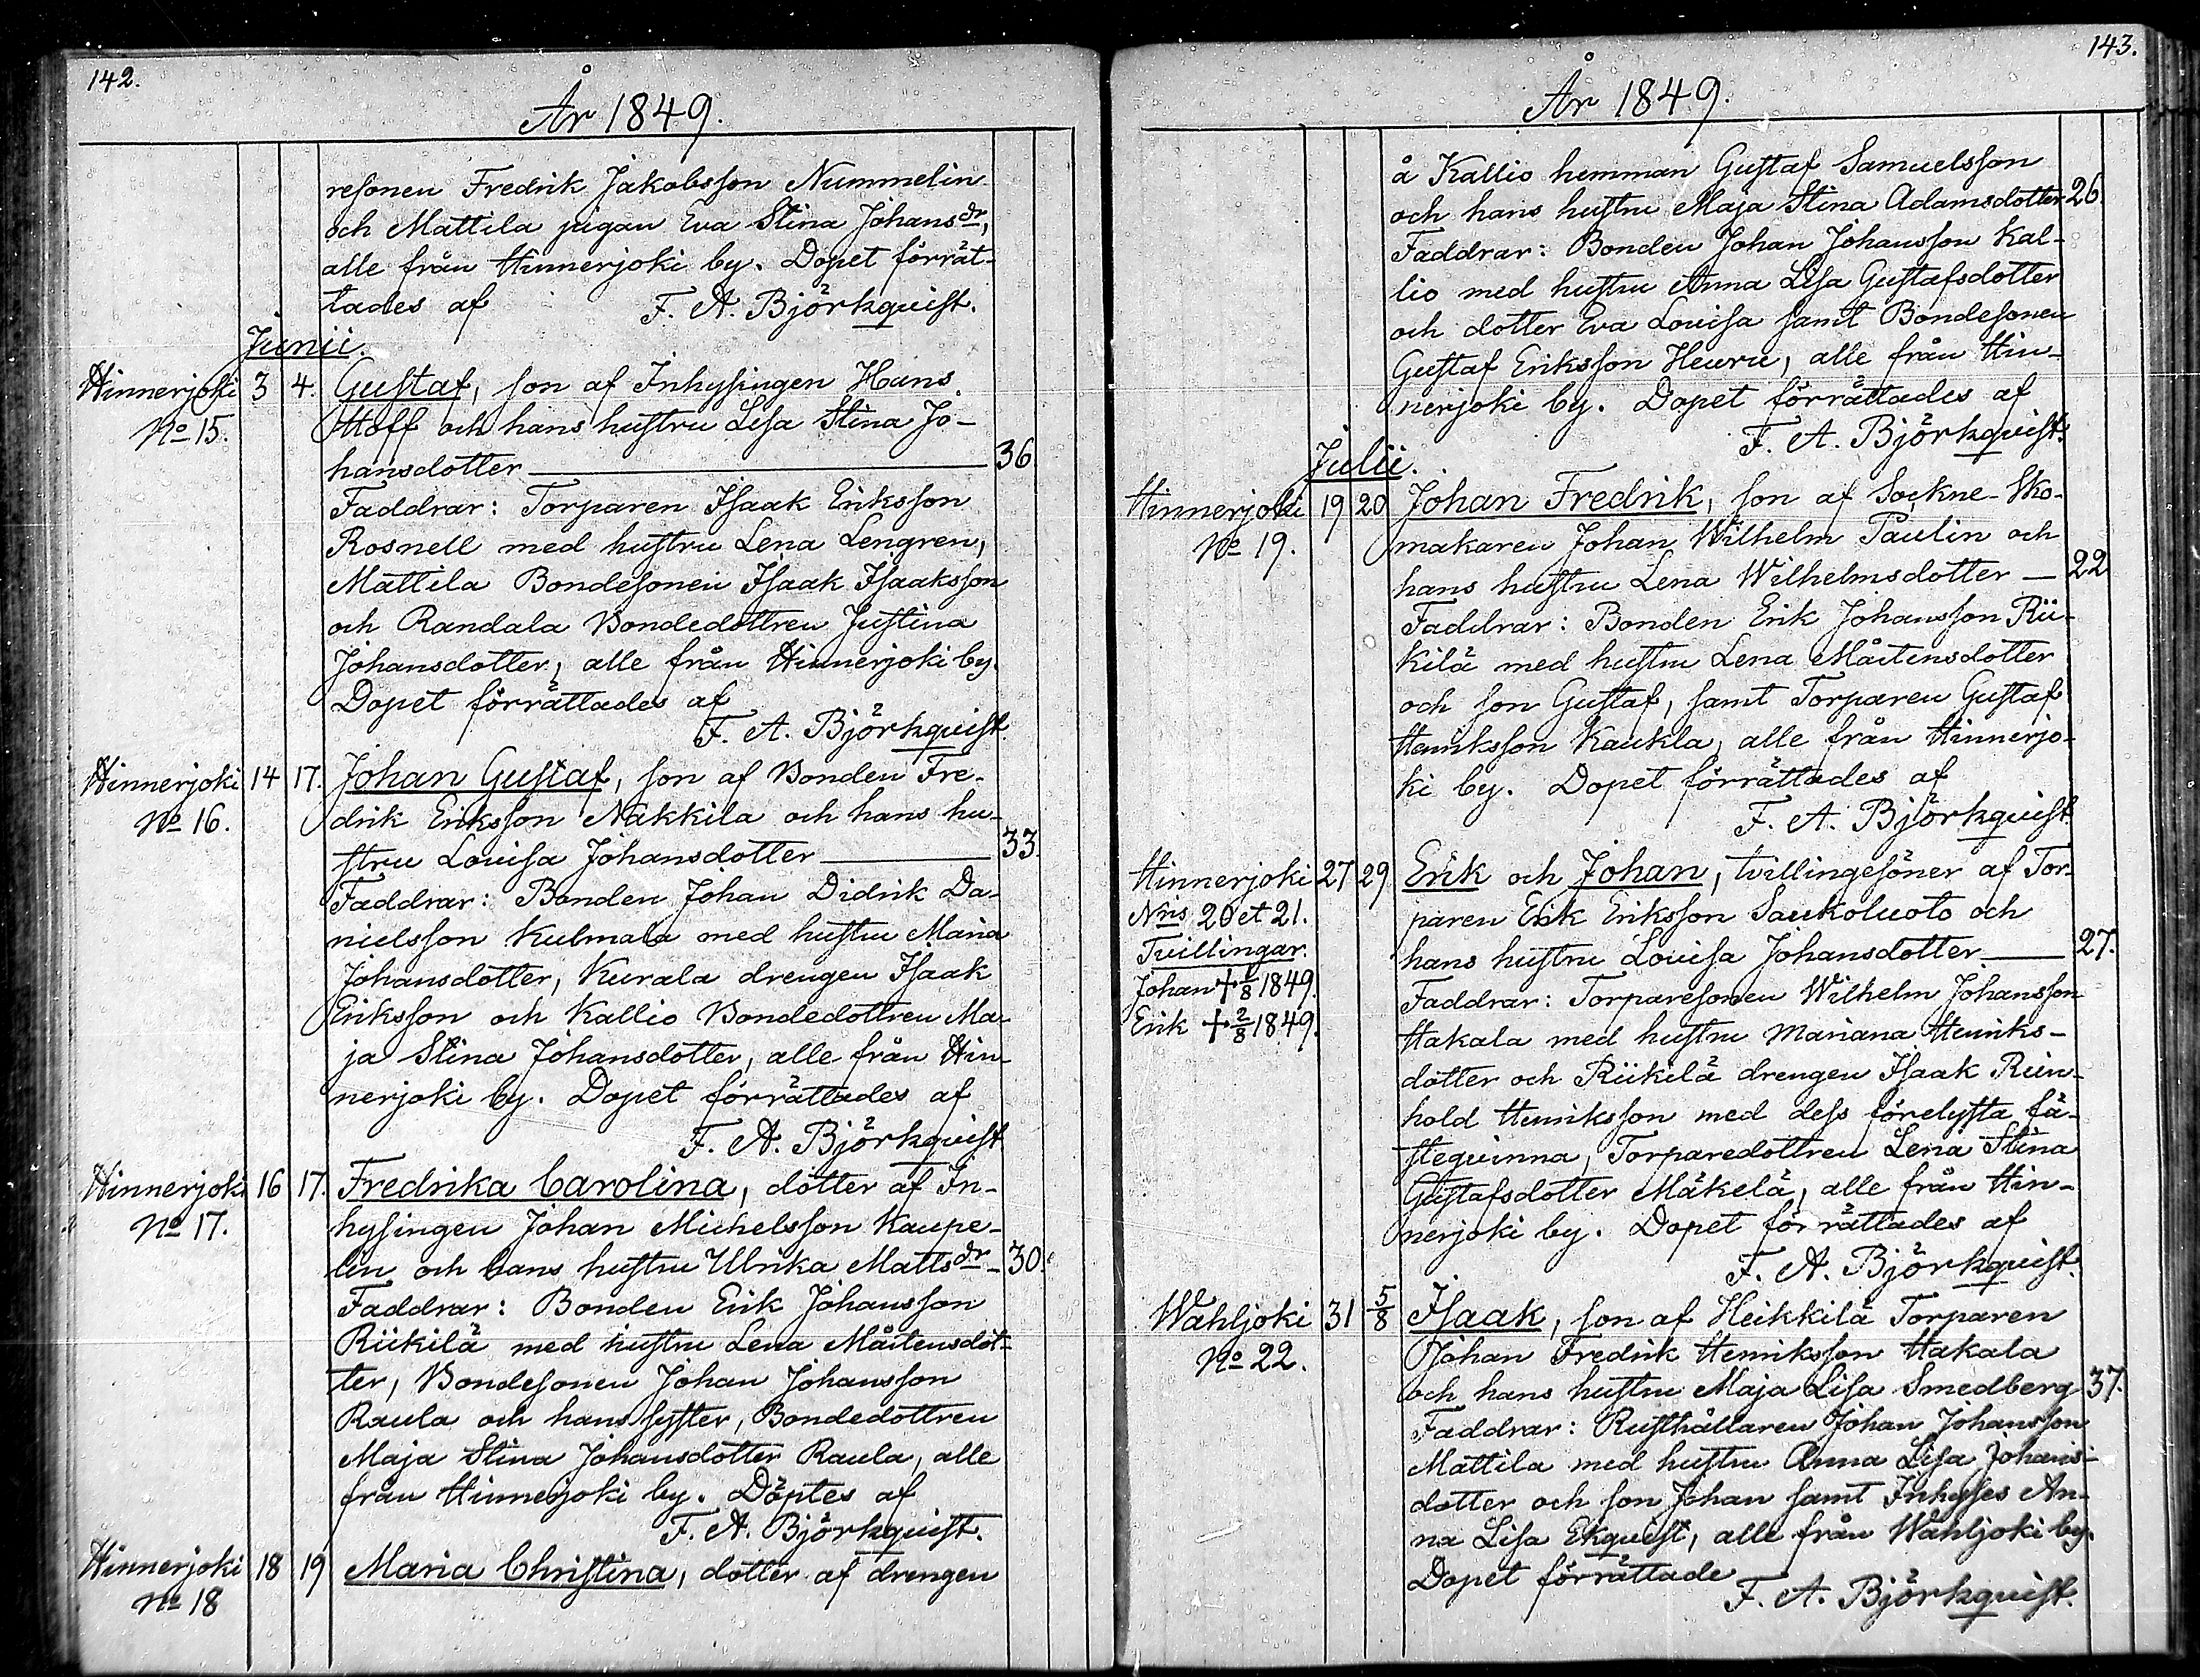 142.
År 1849.
resonen Fredrik Jakobsson Nummelin
och Mattila pigan Eva Stina Johansdr,
alle från Hinnerjoki by. Dopet förrät-
tades af F. A. Björkquist.
Junii.
Hinnerjoki 3 4. Gustaf, son af Inhysingen Hans
No 15. Hoff och hans hustru Lisa Stina Jo-
hansdotter 36.
Faddrar: Torparen Isaak Eriksson
Rosnell med hustru Lena Lengren,
Mattila Bondesonen Isaak Isaaksson
och Randala Bondedottren Justina
Johansdotter, alle från Hinnerjoki by.
Dopet förrättades af
F. A. Björkquist.
Hinnerjoki 14 17. Johan Gustaf, son af Bonden Fre-
No 16. drik Eriksson Nakkila och hans hu-
stru Lovisa Johansdotter 33.
Faddrar: Bonden Johan Didrik Da-
nielsson Kulmala med hustru Maria
Johansdotter, Kurala drengen Isaak
Eriksson och Kallio Bondedottren Ma-
ja Stina Johansdotter, alle från Hin-
nerjoki by. Dopet förrättades af
F. A. Björkquist
Hinnerjoki 16 17. Fredrika Carolina, dotter af In-
No 17. hysingen Johan Michelsson Kaupe-
lin och hans hustru Ulrika Mattsdr - 30.
Faddrar: Bonden Erik Johansson
Riikilä med hustru Lena Mårtensdot-
ter, Bondesonen Johan Johansson
Raula och hans syster, Bondedottren
Maja Stina Johansdotter Raula, alle
från Hinnerjoki by. Döptes af
F. A. Björkquist.
Hinnerjoki 18 19 Maria Christina, dotter af drengen
No 18
143.
År 1849.
å Kallio hemman Gustaf Samuelsson
och hans hustru Maja Stina Adamsdotter 26.
Faddrar: Bonden Johan Johansson Kal-
lio med hustru Anna Lisa Gustafsdotter
och dotter Eva Lovisa samt Bondesonen
Gustaf Eriksson Heuru, alle från Hin-
nerjoki by. Dopet förrättades af
F. A. Björkquist.
Julii.
Hinnerjoki 19 20 Johan Fredrik, son af Sockne-Sko-
No 19. makaren Johan Wilhelm Paulin och
hans hustru Lena Wilhelmsdotter — 22
Faddrar: Bonden Erik Johansson Rii-
kilä med hustru Lena Mårtensdotter
och son Gustaf, samt Torparen Gustaf
Henriksson Kaukla, alle från Hinnerjo-
ki by. Dopet förrättades af
F. A. Björkquist
Hinnerjoki 27 29 Erik och Johan, tvillingesöner af Tor-
Nris 20 et 21. paren Erik Eriksson Saukoluoto och
Tvillingar. hans hustru Lovisa Johansdotter — 27.
Johan + 1/8 1849. Faddrar: Torparesonen Wilhelm Johansson
Erik + 2/8 1849. Hakala med hustru Mariana Henriks-
dotter och Riikilä drengen Isaak Rein-
hold Henriksson med dess förelysta fä-
stequinna, Torparedottren Lena Stina
Gustafsdotter Mäkelä, alle från Hin-
nerjoki by. Dopet förrättades af
F. A. Björkquist.
Wahljoki 31 5/8 Isaak, son af Heikkilä Torparen
No 22. Johan Fredrik Henriksson Hakala
och hans hustru Maja Lisa Smedberg 37.
Faddrar: Rusthållaren Johan Johansson
Mattila med hustru Anna Lisa Johans-
dotter och son Johan samt Inhyses An-
na Lisa Ekquist, alle från Wahljoki by.
Dopet förrättade F. A. Björkquist.